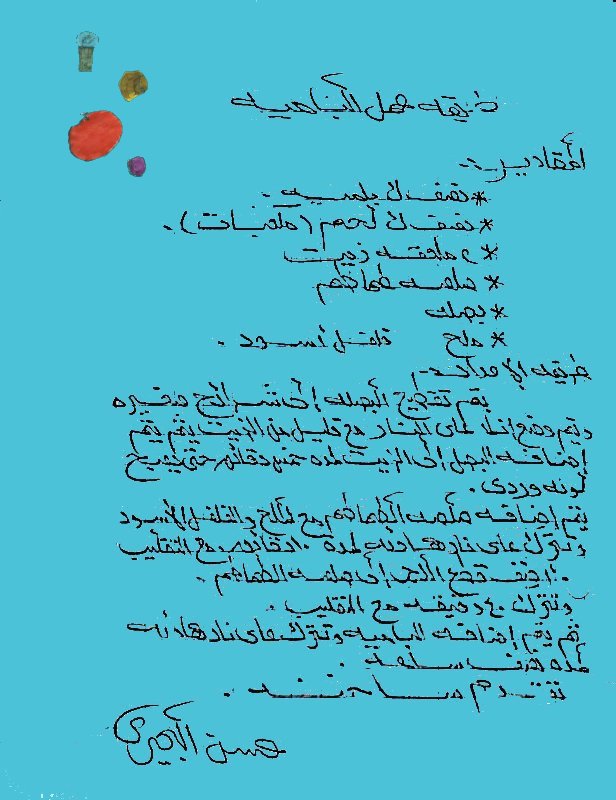 طريقه عمل الباميه
المقادير :-
* نصف ك باميه .
* نصف ك لحم (مكعبات) .
* ٢ ملعقه زيت
* صلصه طماطم
* بصله
* ملح فلفل أسود .
طريقه الإعداد :-
يتم تقطيع البصله إلى شرائح صغيره
ويتم وضع إناء على النار مع قليل من الزيت ثم يتم
إضافه البصل إلى الزيت لمده خمس دقائق حتى يصبح
لونه وردى .
يتم إضافه صلصه الطماطم مع الملح والفلفل الأسود
وتترك على نار هادئه لمده ١٠ دقائق مع التقليب
قطع اللحم إلى صلصه الطماطم .
وتترك ٤٠ دقيقه مع التقليب .
ثم يتم إضافه الباميه وتترك على نار هادئه
لمده نصف ساعه .
تقدم ساخنه .
حسن البحيرى